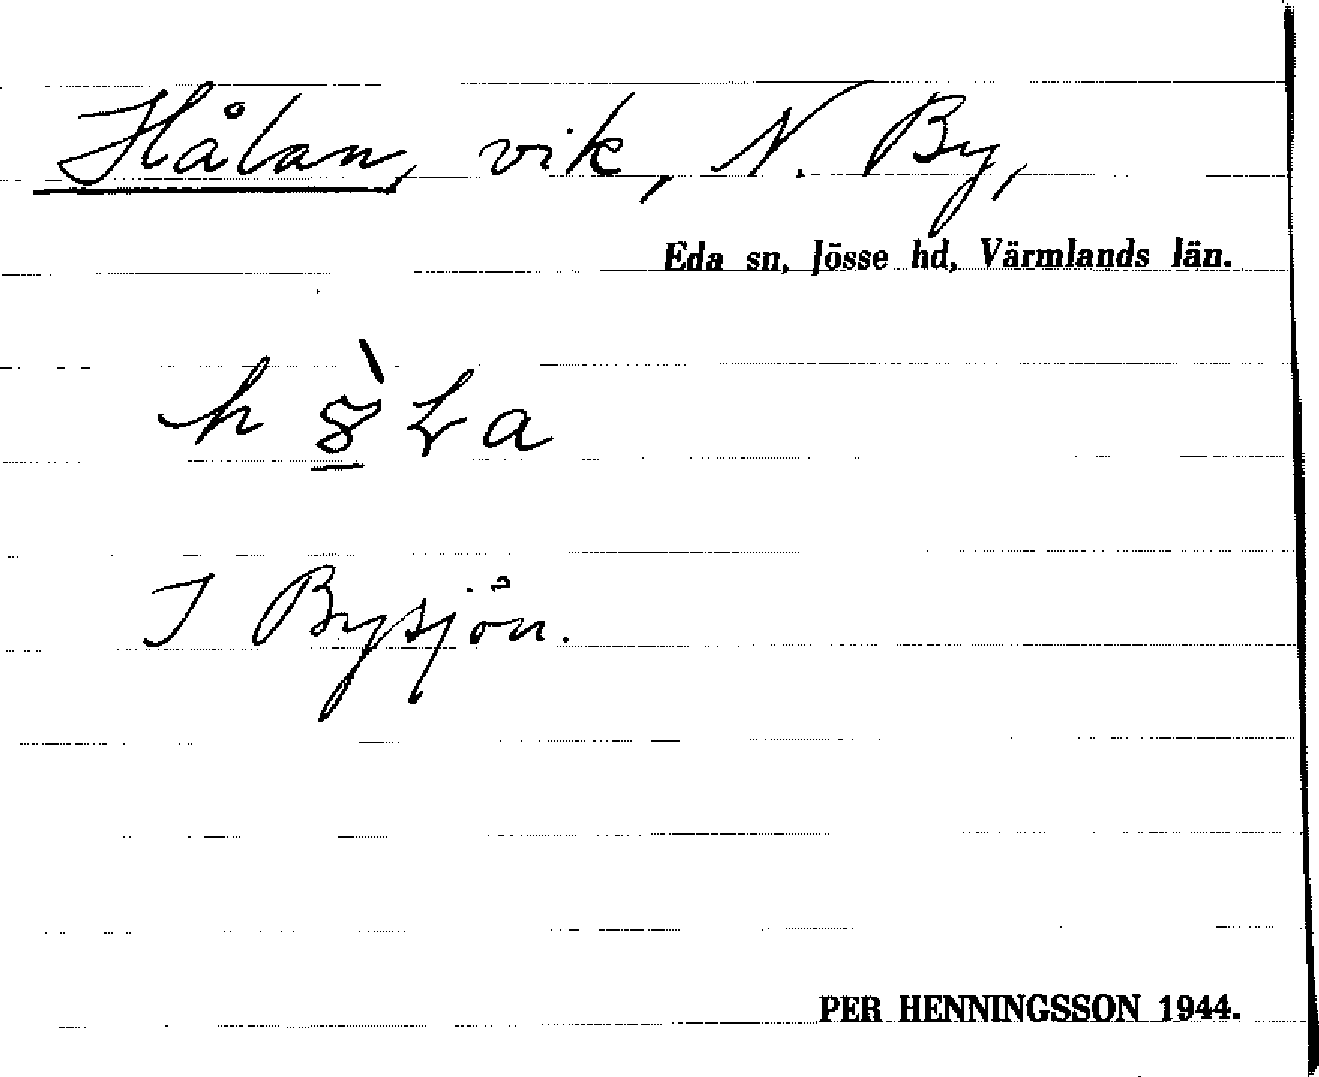 Hålan, vik, N. By,
Eda sn, Jösse hd, Värmlands län.
I Bysjön.
PER HENNINGSSON 1944.